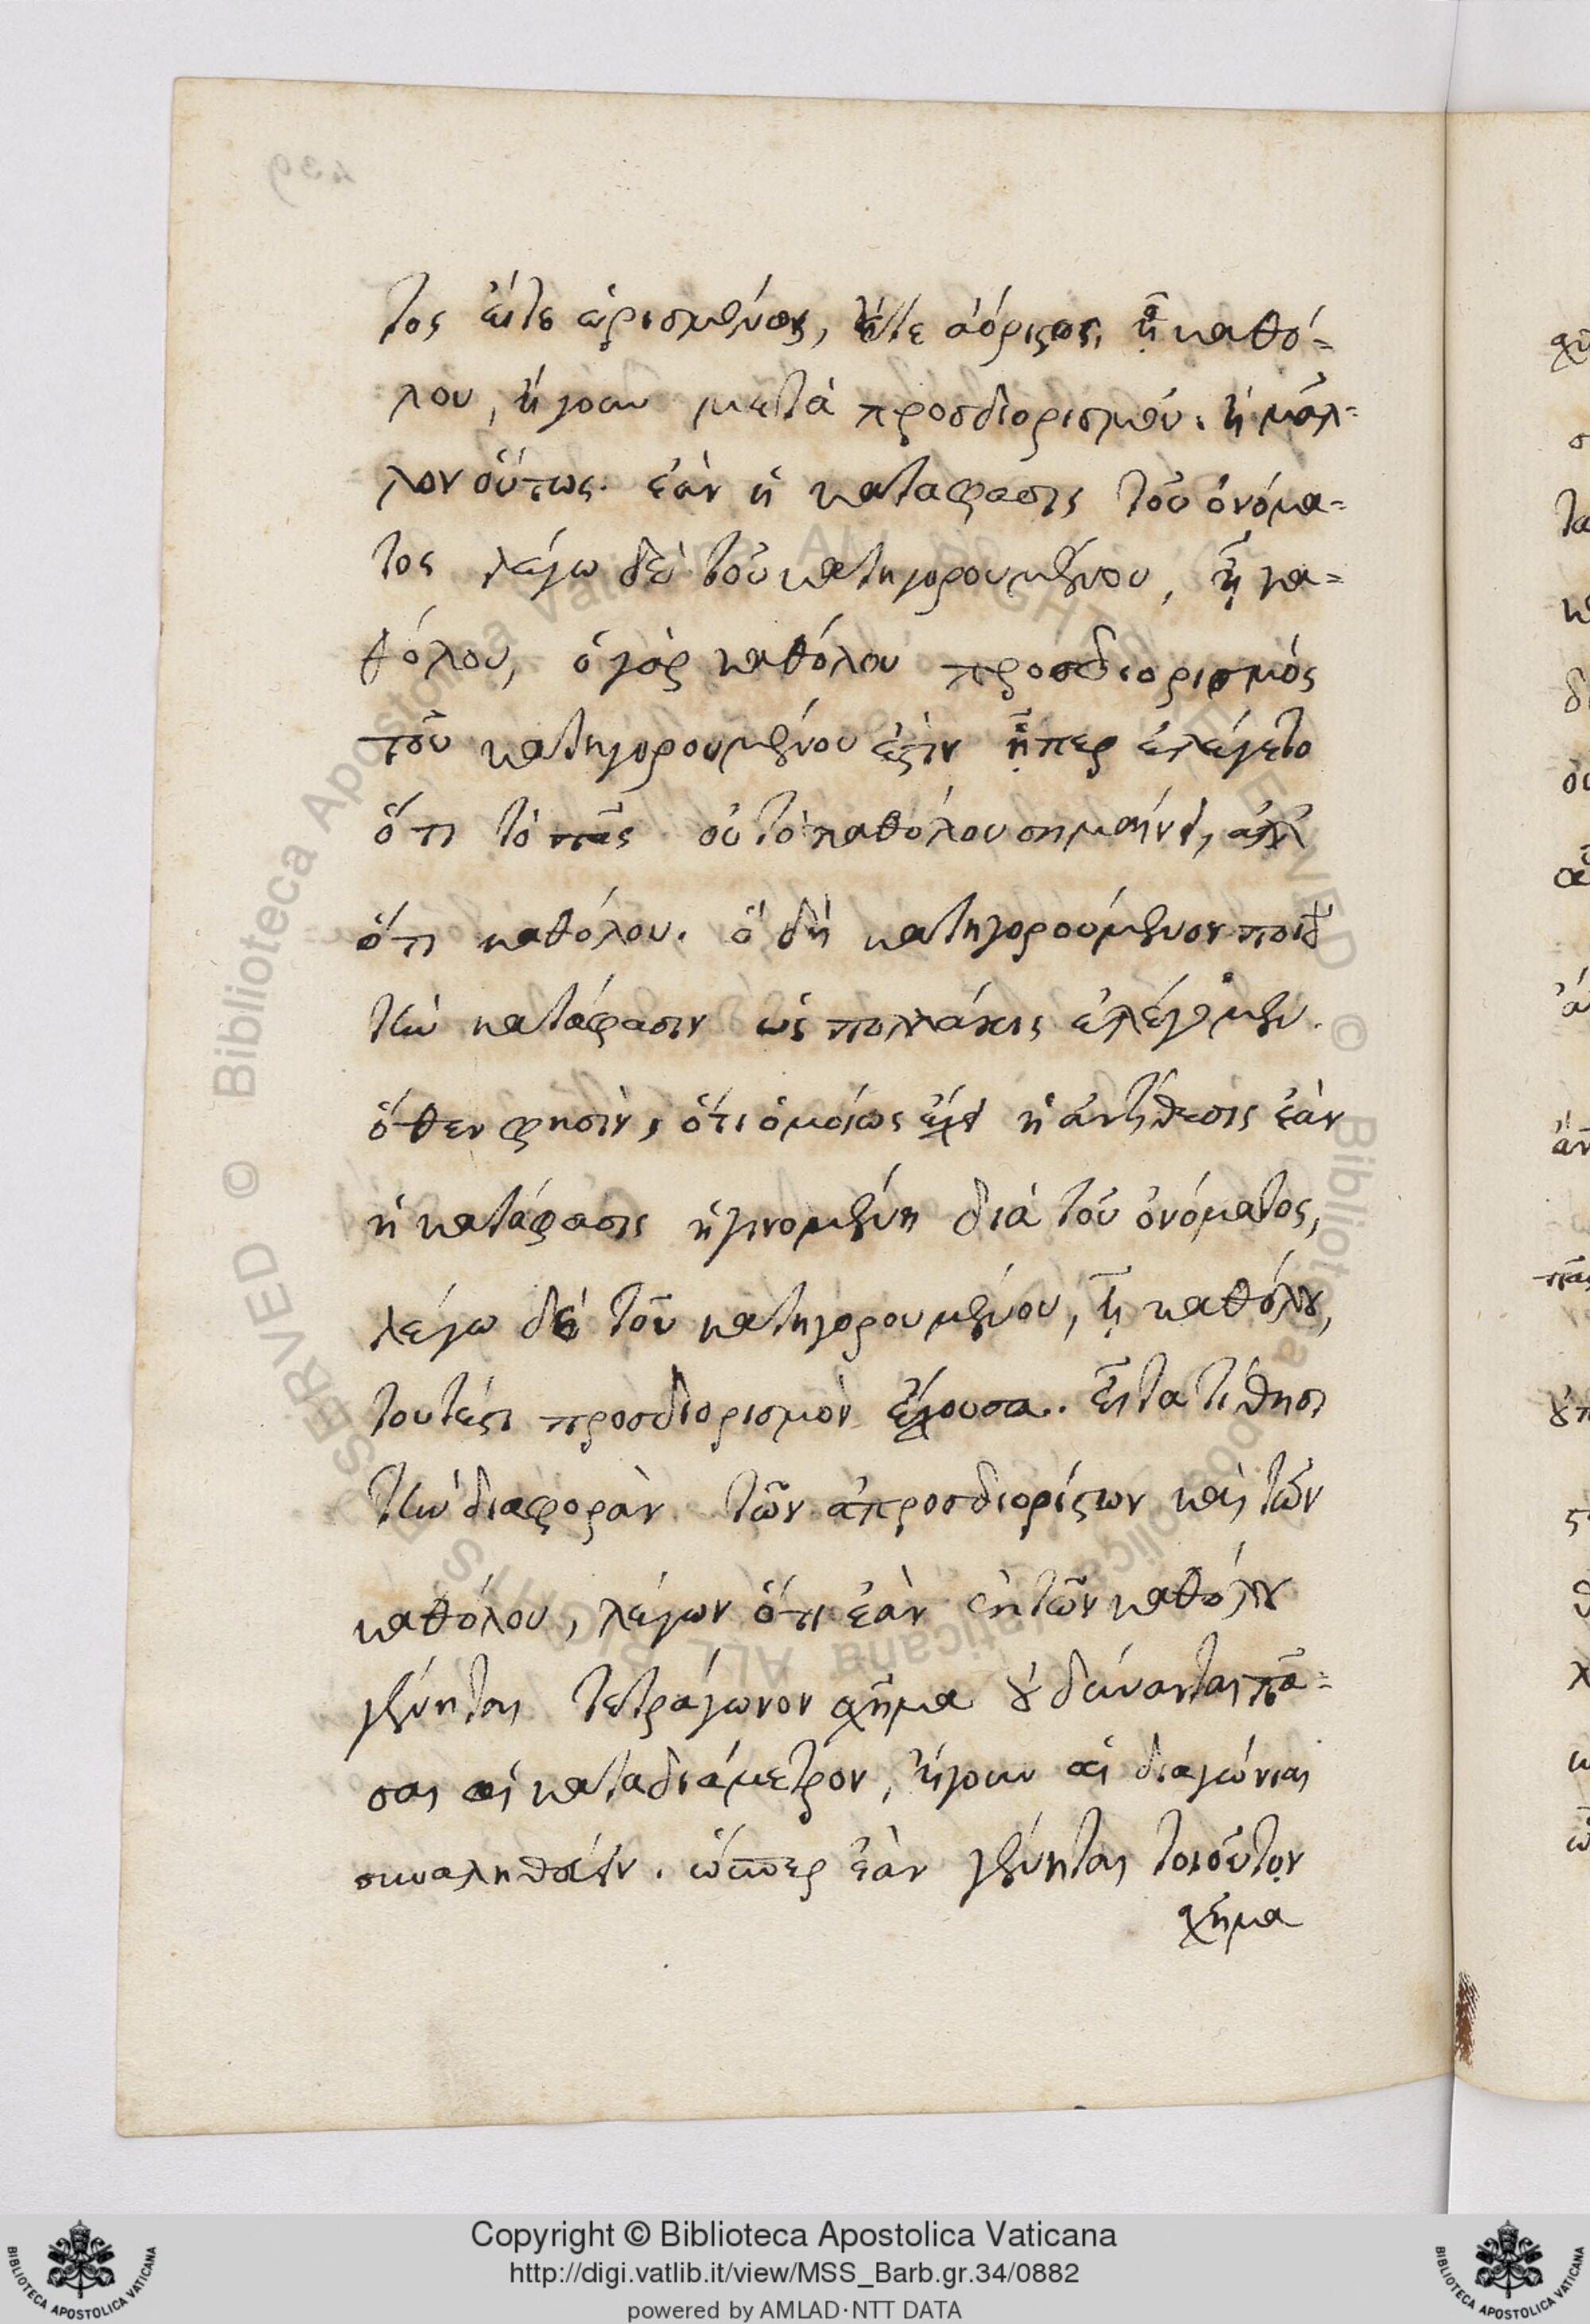 τος εἴτε ὡρισμένος, εἴτε ἀόριστος, ᾖ καθό-
λου, ἤγουν μετὰ προσδιορισμοῦ. ἢ μᾶλ-
λον οὕτως. ἐὰν ἡ κατάφασις τοῦ ὀνόμα-
τος λέγω δὲ τοῦ κατηγορουμένου, ᾖ κα-
θόλου, ὁ γὰρ καθόλου προσδιορισμός
τοῦ κατηγορουμένου ἐστὶν ᾗπερ ἐλέγετο
ὅτι τὸ πᾶς οὐ τὸ καθόλου σημαίνει, ἀλλ'
ὅτι καθόλου. ὃ δὴ κατηγορούμενον ποιεῖ
τὴν κατάφασιν ὡς πολλάκις ἐλέγομεν.
ὅθεν φησὶν, ὅτι ὁμοίως ἔχει ἡ ἀντίθεσις ἐὰν
ἡ κατάφασις ἡ γινομένη διὰ τοῦ ὀνόματος,
λέγω δὲ τοῦ κατηγορουμένου, ᾖ καθόλου,
τουτέστι προσδιορισμὸν ἔχουσα. εἶτα τίθησι
τὴν διαφορὰν τῶν ἀπροσδιορίστων καὶ τῶν
καθόλου, λέγων ὅτι ἐὰν ἐκ τῶν καθόλου
γένηται τετράγωνον σχῆμα οὐ δύνανται πᾶ-
σαι αἱ κατὰ διάμετρον, ἤγουν αἱ διαγώνιαι
συναληθεύειν. ὥσπερ ἐὰν γένηται τοιοῦτον
σχῆμα
Copyright © Biblioteca Apostolica Vaticana
http://digi.vatlib.it/view/MSS_Barb.gr.34/0882
powered by AMLAD·NTT DATA